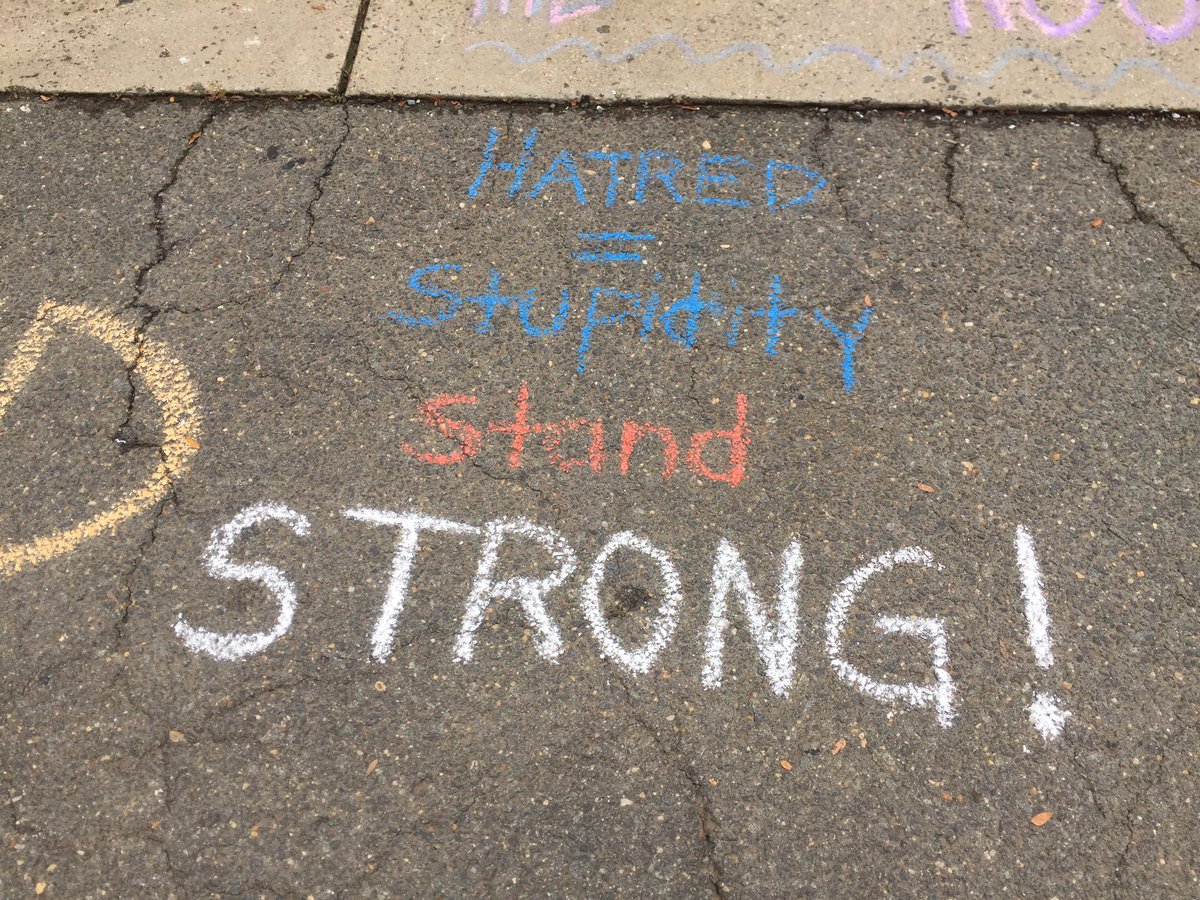 HATRED
=
Stupidity
Stand
STRONG!